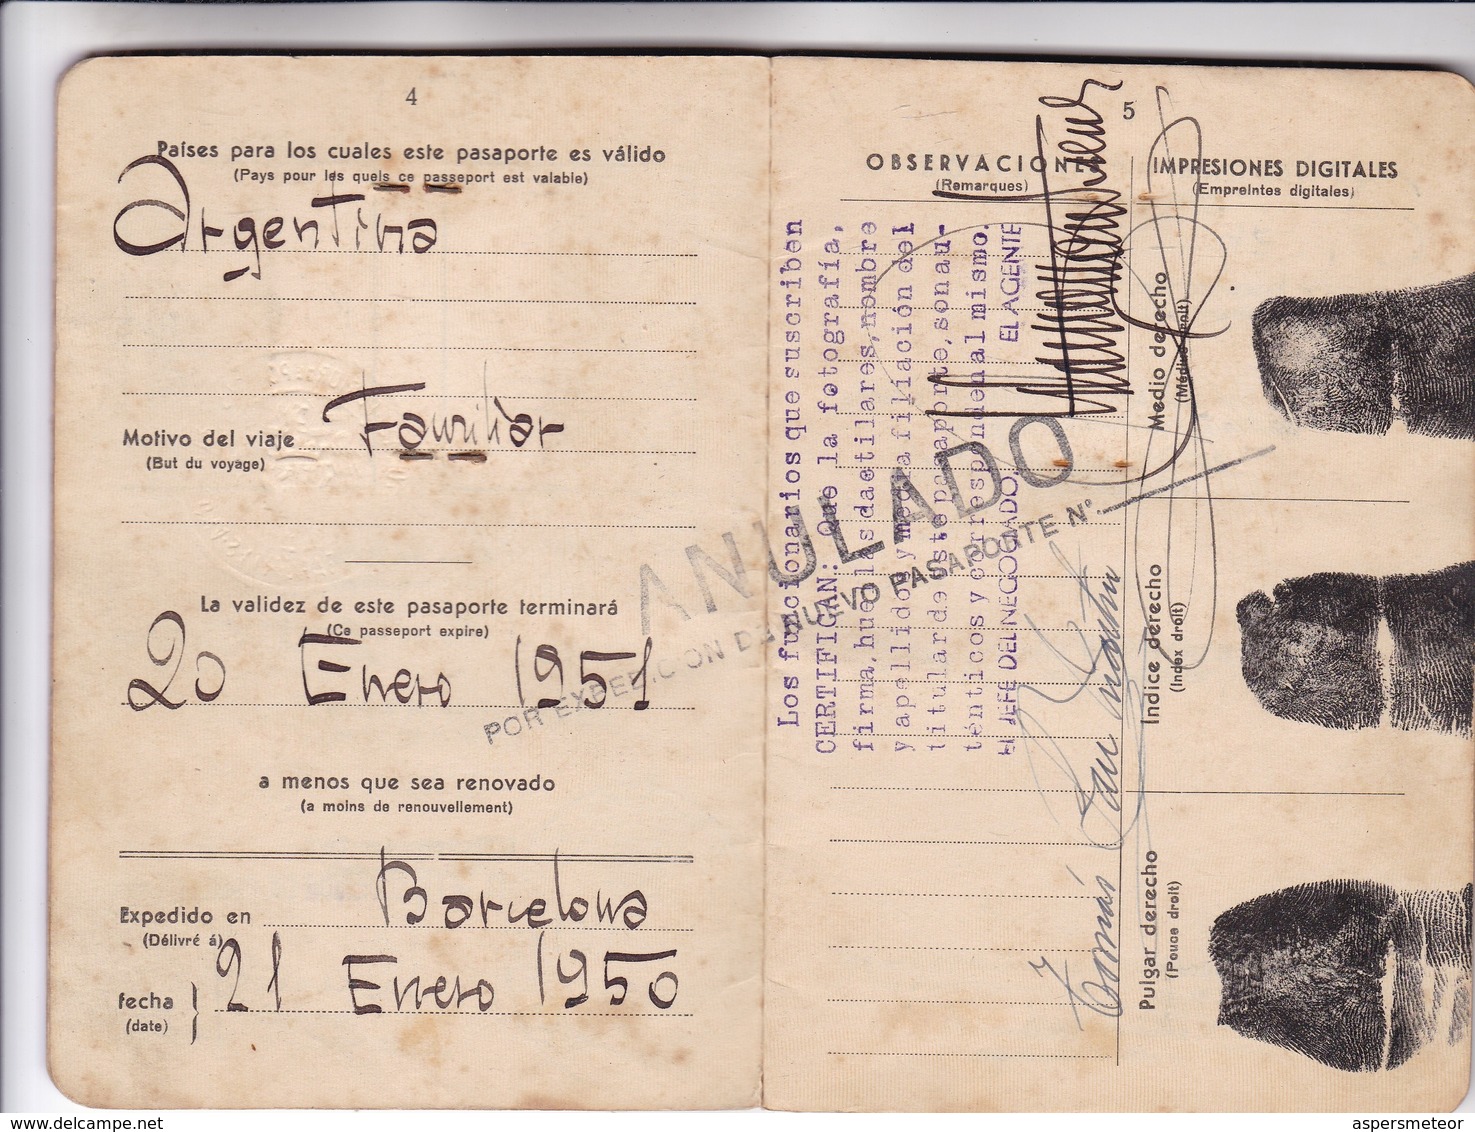 4
Países para los cuales este pasaporte es válido
(Pays pour les quels ce passeport est valable)
Argentina
Motivo del viaje Familiar
(But du voyage)
La validez de este pasaporte terminará
(Ce passeport expire)
20 Enero 1951
a menos que sea renovado
(a moins de renouvellement)
Expedido en Barcelona
(Délivré á)
fecha } 21 Enero 1950
(date)
ANULADO
POR EXPEDICION DE NUEVO PASAPORTE Nº.
5
OBSERVACIONES
(Remarques)
IMPRESIONES DIGITALES
(Empreintes digitales)
Los funcionarios que suscriben
CERTIFICAN: Que la fotografía,
firma, huellas dactilares, nombre
y apellidos y media filiación del
titular de este pasaporte, son au-
ténticos y corresponden al mismo.
El JEFE DEL NEGOCIADO, EL AGENTE
Tomás San Martin
Medio derecho
(Médius droit)
Indice derecho
(Index droit)
Pulgar derecho
(Pouce droit)
aspersmeteor